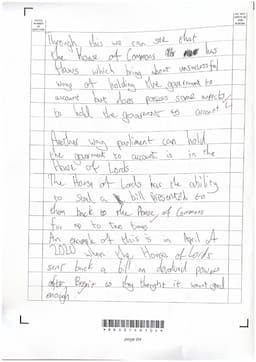 Through this we can see that
the House of Commons has
flaws which bring about unsuccessful
ways of holding the government to
account but does possess some aspects
to hold the government to account
Another way parliment can hold
the government to account is in the
House of Lords
The House of Lords has the ability
to send a bill presented to
them back to the House of Commons
for up to two times
An example of this is in April of
2020 when the House of Lords
sent back a bill on devolved powers
after Brexit as they thought it wasnt good
enough